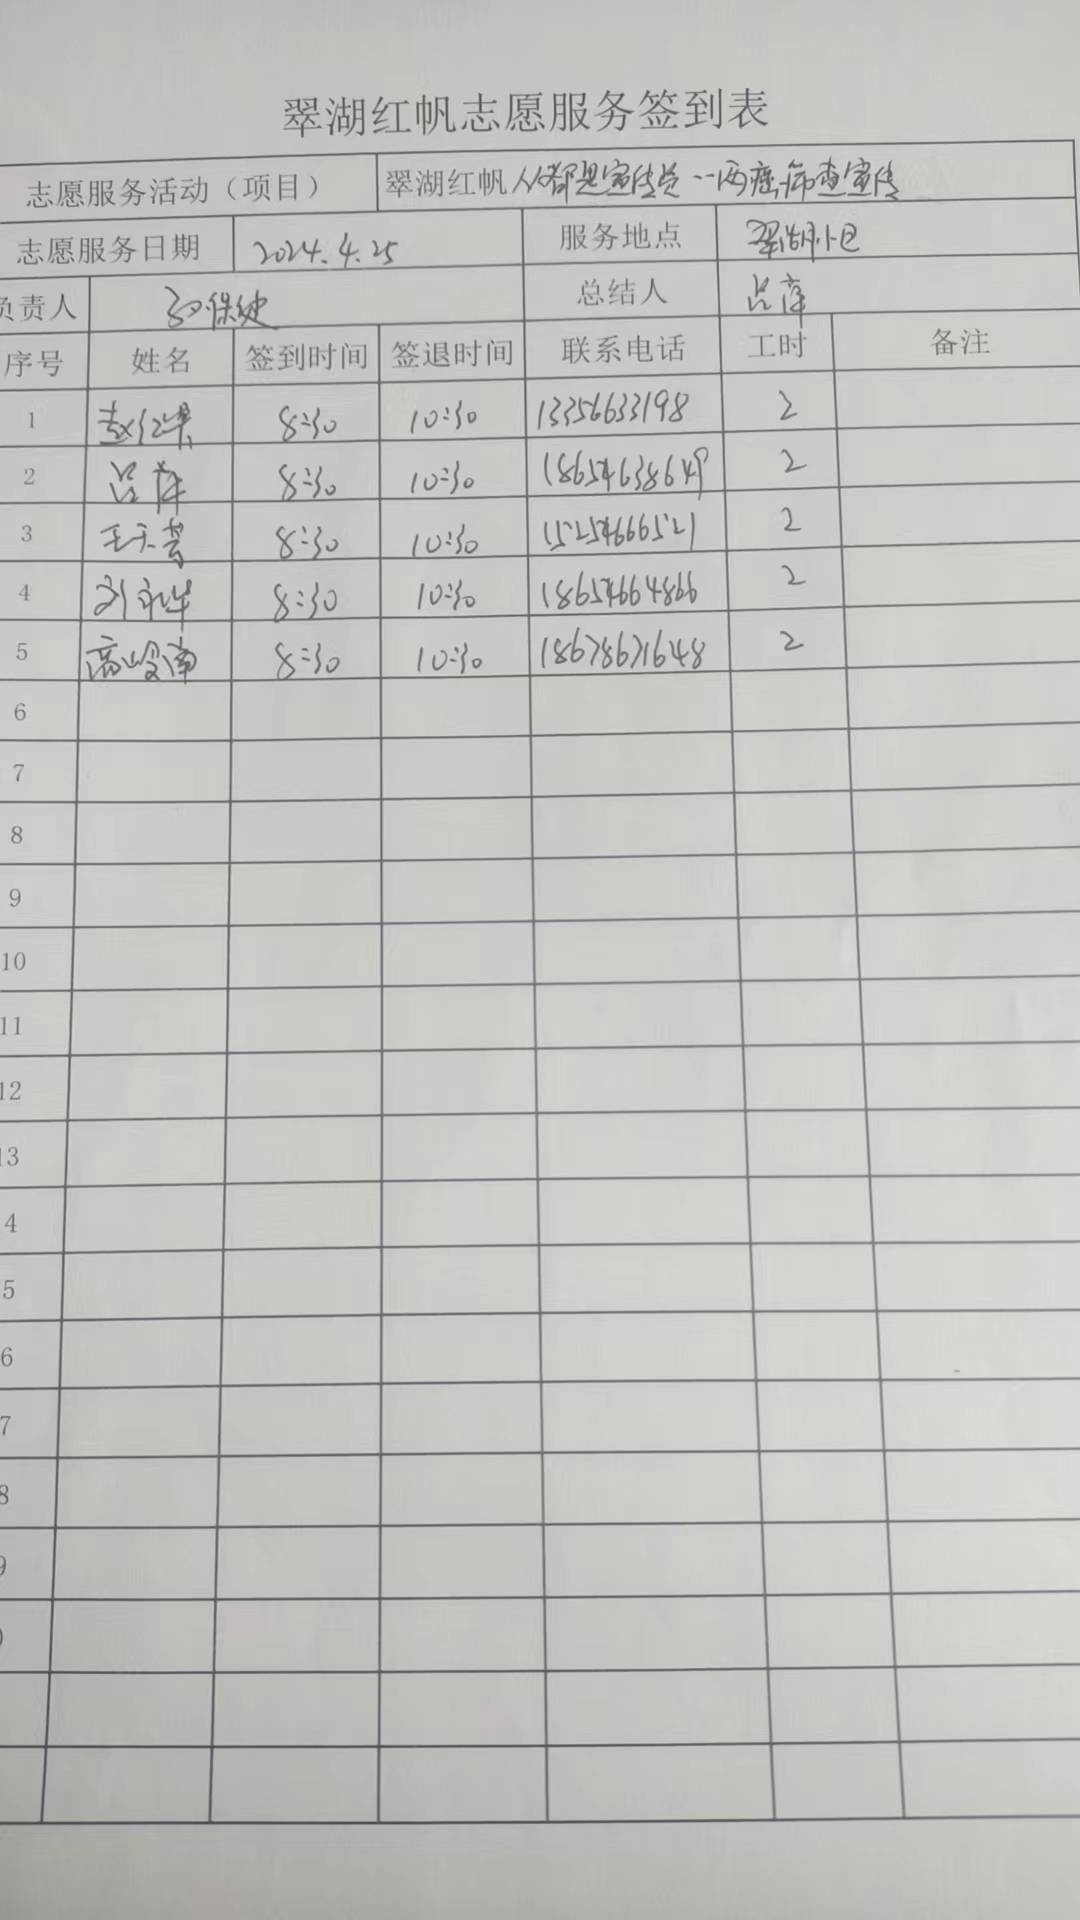 翠湖红帆志愿服务签到表
志愿服务活动（项目） 翠湖红帆人人都是宣传员--两癌病查宣传
志愿服务日期 2024.4.25 服务地点 翠湖小区
负责人 总结人 吕萍
序号 姓名 签到时间 签退时间 联系电话 工时 备注
1 8:30 10:30 13356633198 2
2 吕萍 8:30 10:30 18654638649 2
3 8:30 10:30 15254666521 2
4 8:30 10:30 18654664866 2
5 高岭南 8:30 10:30 18678671648 2
6
7
8
9
10
11
12
13
4
5
6
7
8
9